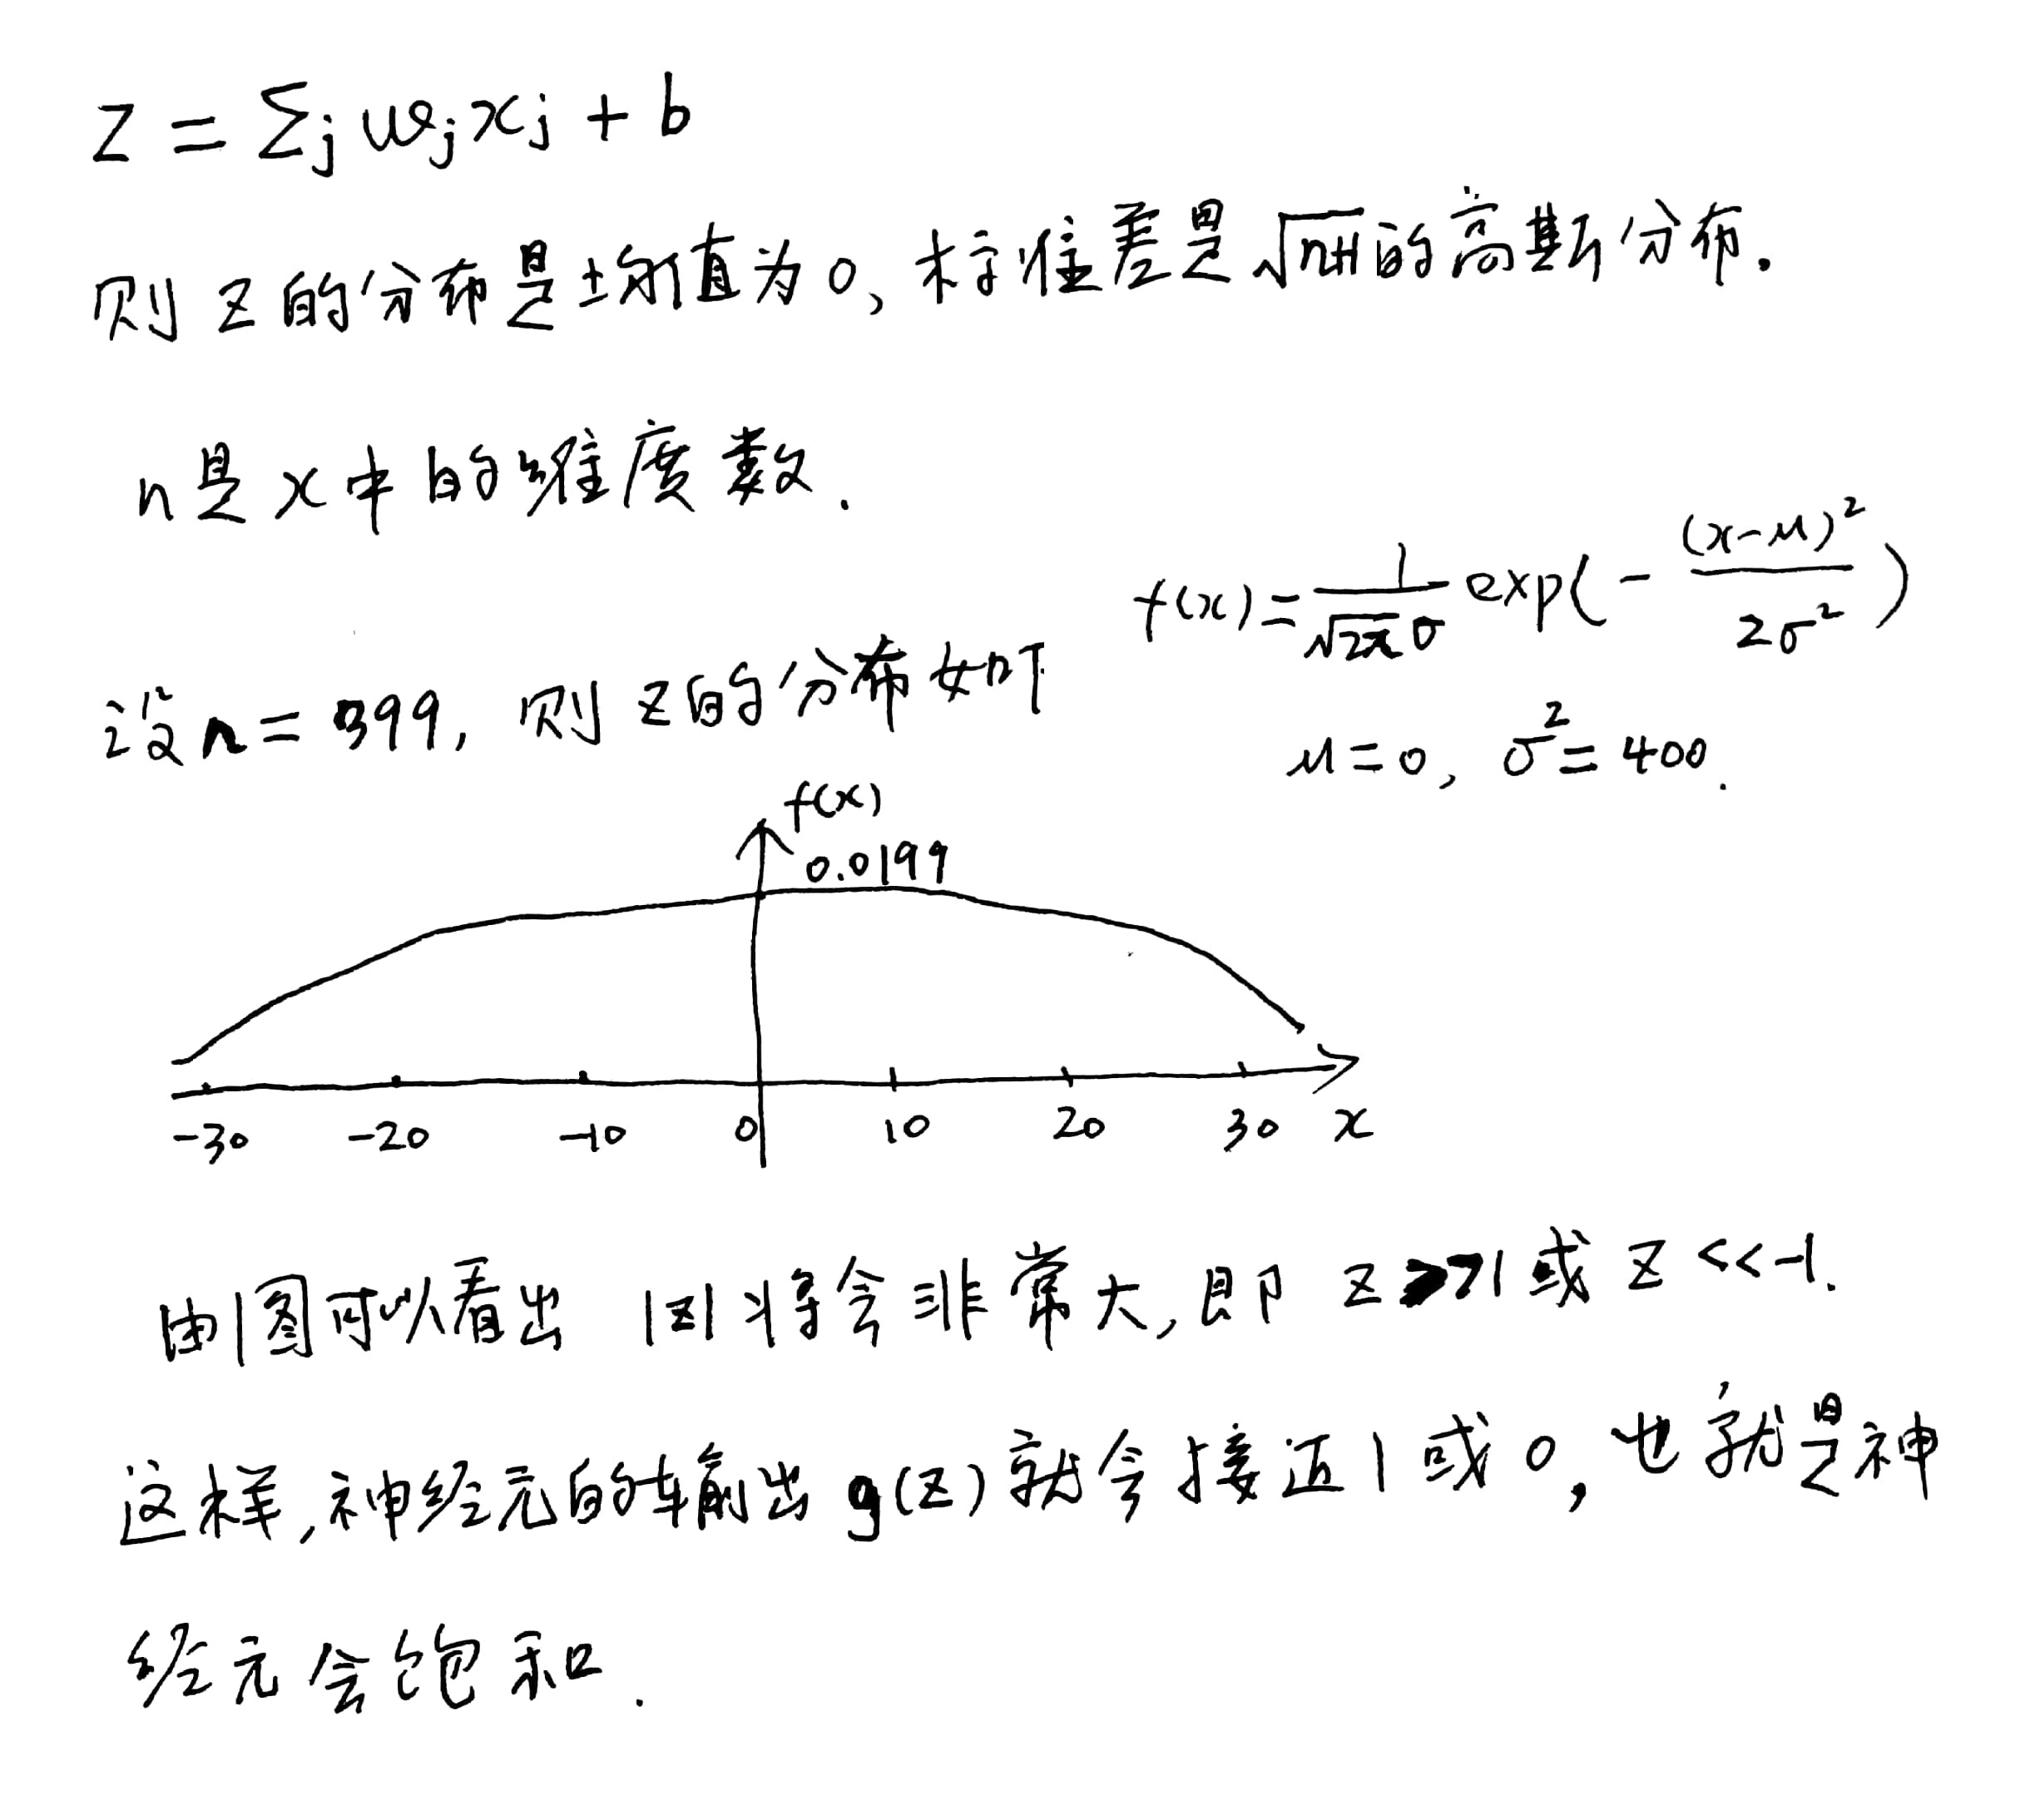 z = Σj wj xj + b
则 z 的分布是均值为 0, 标准差是 √n+1 的高斯分布.
n是 x 中的维度数.
f(x) = 1/(√2π σ) exp(- (x-μ)²/(2σ²))
设 n = 399, 则 z 的分布如下
μ = 0, σ² = 400.
f(x)
0.0199
-30 -20 -10 0 10 20 30 x
由图可以看出 |z| 将会非常大, 即 z >> 1 或 z << -1.
这样, 神经元的输出 g(z) 就会接近 1 或 0, 也就是神
经元会饱和.